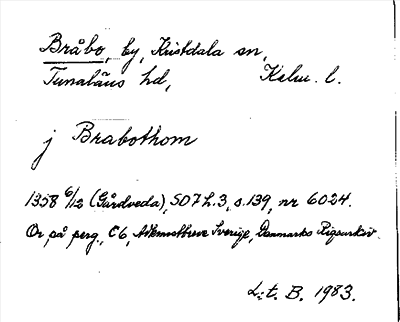 Bråbo, by, Kristdala sn,
Tunaläns hd, Kalm. l.
j Brabothom
1358 6/12 (Gårdveda), SD 7 h. 3, s. 139, nr 6024.
Or, på perg., C6, Adkomstbreve Sverige, Danmarks Rigsarkiv.
L:t. B. 1983.